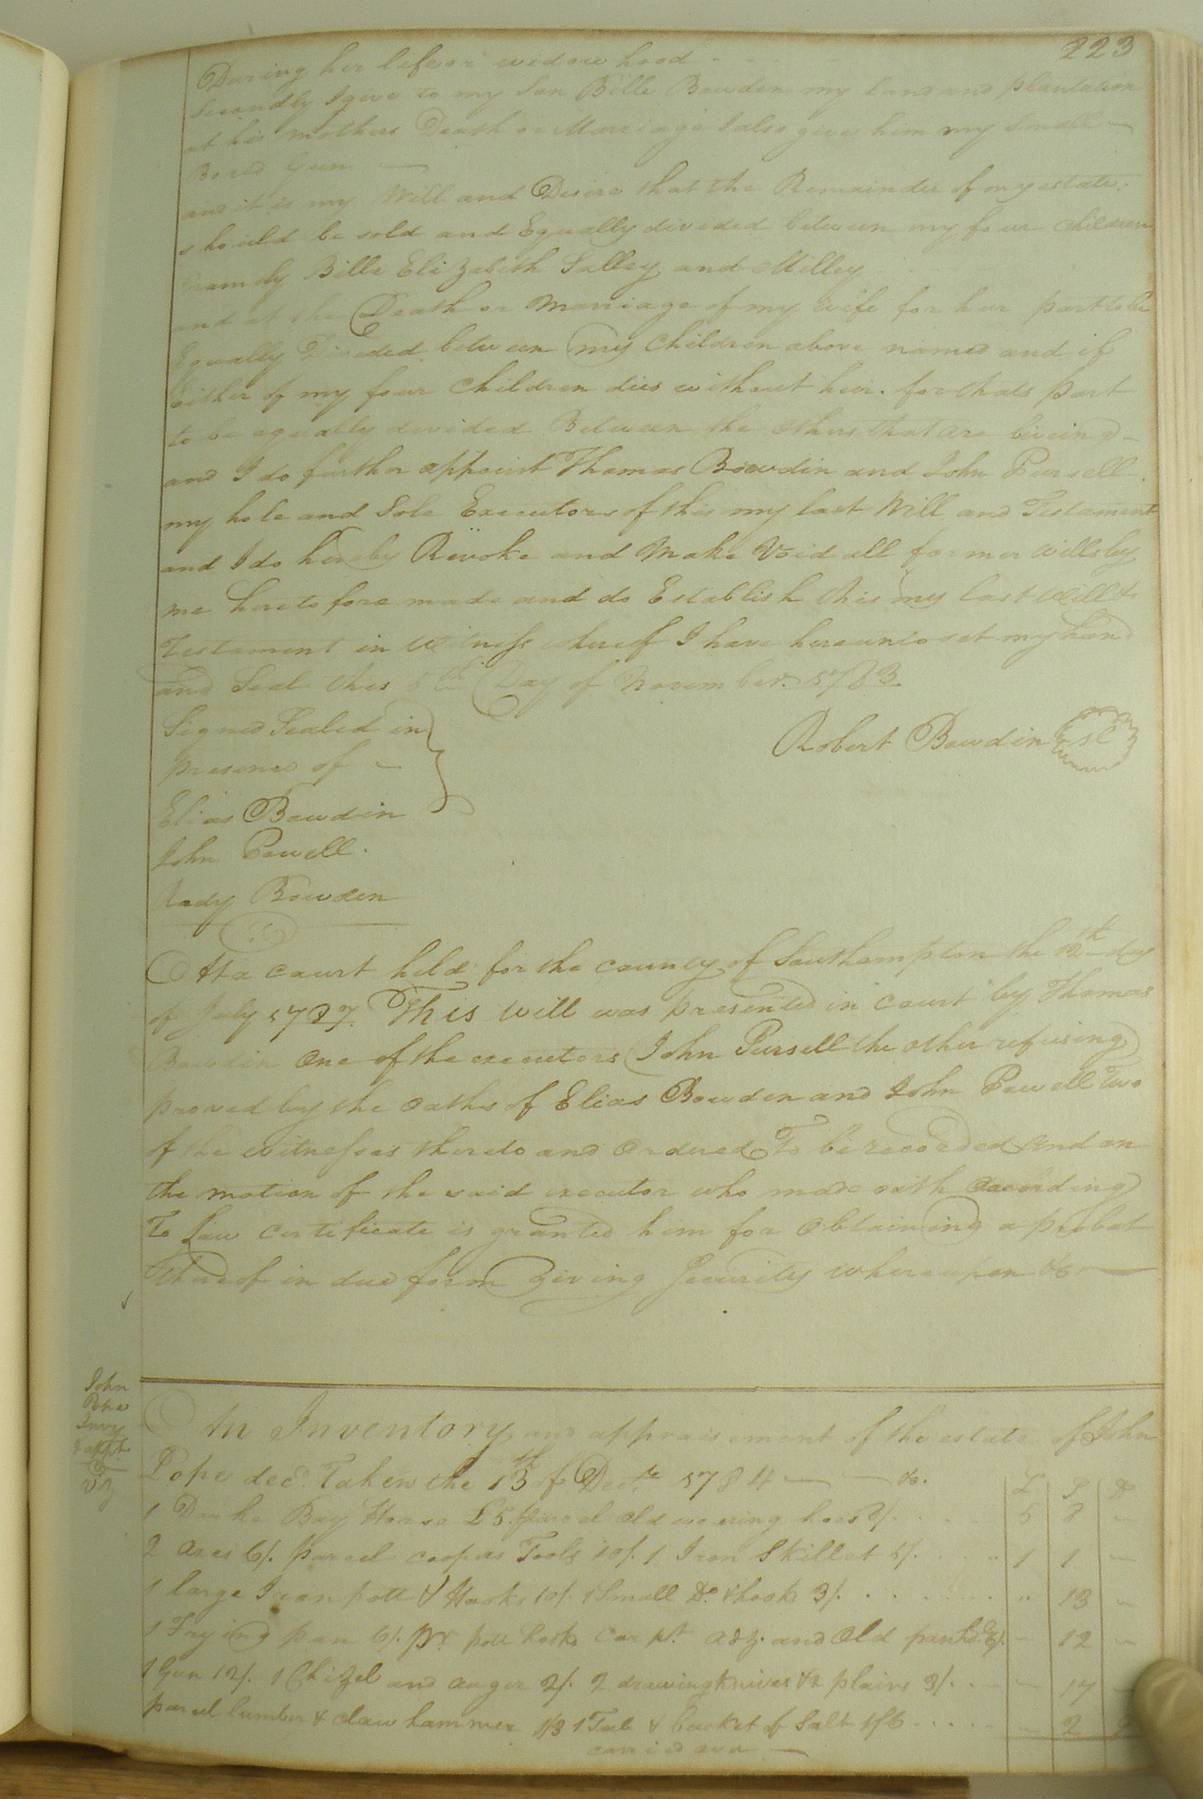 223
During her life or widowhood
Secondly I give to my Son Bille Bowden my land and plantation
at his mothers Death or Marriage I also give him my Small
Bored Gun
and it is my Will and Desire that the Remainder of my estate
should be sold and Equally divided between my four children
Namely Bille Elizabeth Salley and Milley
and at the Death or Marriage of my wife for her part to be
Equally Divided between my Children above named and if
Either of my four Children dies without heir for thats part
to be equally devided Between the others that are liveing
and I do further appoint Thomas Bowdin and John Pursell
my hole and Sole Executors of this my last Will and Testament
and I do hereby Revoke and Make Void all former wills by
me heretofore made and do Establish this my last Will &
Testament in Witness whereof I have hereunto set my hand
and Seal this 5th Day of November 1783
Signed Sealed in
presence of
Robert Bowdin
Elias Bowdin
John Powell
Bowden
At a court held for the county of Southampton the 12th day
of July 1787 This Will was presented in court by Thomas
Bowdin One of the executors (John Pursell the other refusing)
proved by the oaths of Elias Bowden and John Powell Two
of the witnesses thereto and Ordered To be recorded And on
the motion of the said executor who made oath according
To Law certificate is granted him for Obtaining a probat
thereof in due form Giving Security whereupon &c
John
Pope
Invy
& appt
An Inventory and appraisement of the estate of John
Pope decd. Taken the 13th of Decr. 1784
£ S D
1 Darke Bay Horse £5. parcel old weareing hoes 8/. 5 8 -
2 axes 6/. parcel coopers Tools 10/. 1 Iron Skillet 5/. 1 1 -
1 large Iron pott & Hooks 10/. 1 Small Do. & hooks 3/. " 13 -
1 Frying pan 6/. pr. pott hooks adz. and old - 12 -
1 Gun 12/. 1 Chizel and auger 2/. 2 drawing knives & 2 plains 3/. - 17 -
parcel lumber & claw hammer 1/3 1 Tub & bucket of Salt 1/6 - 2
carried over